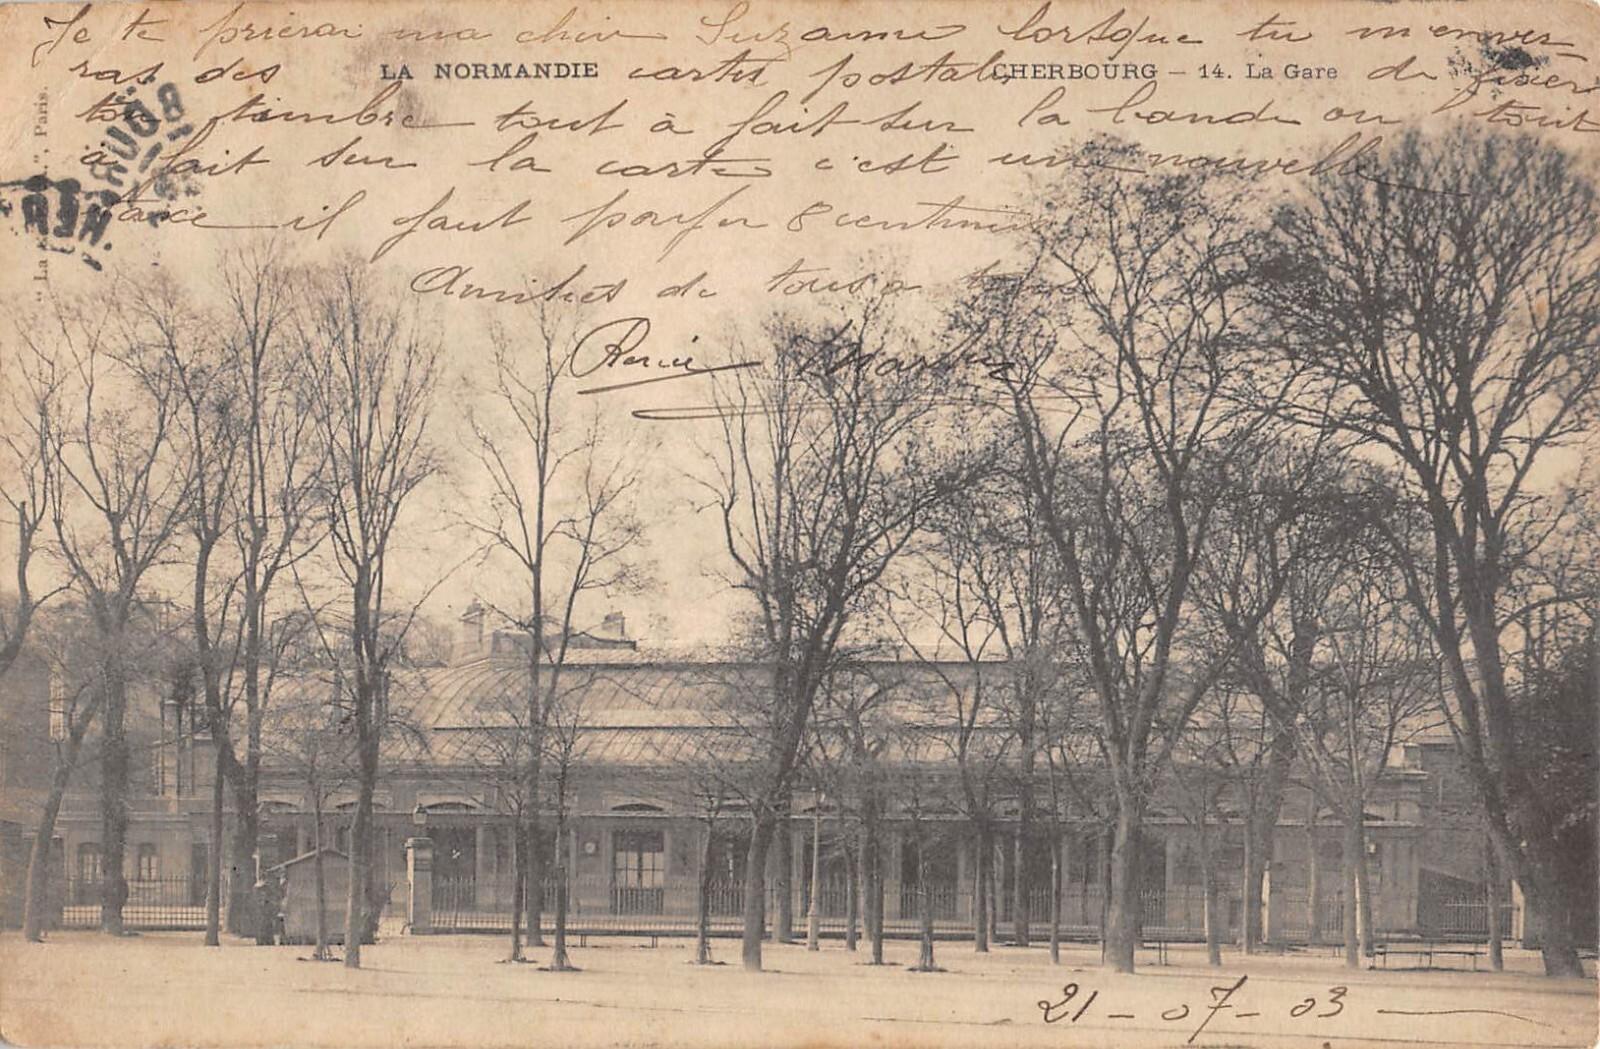 Je te prierai ma chère Suzanne lorsque tu m'enver
ras des cartes postales de fixer
LA NORMANDIE
CHERBOURG – 14. La Gare
ton timbre tout à fait sur la bande ou tout
à fait sur la carte c'est une nouvelle
taxe il faut 8 centimes
Amitiés de tous à tous
Martin
21 - 07 - 03
"La Paris.